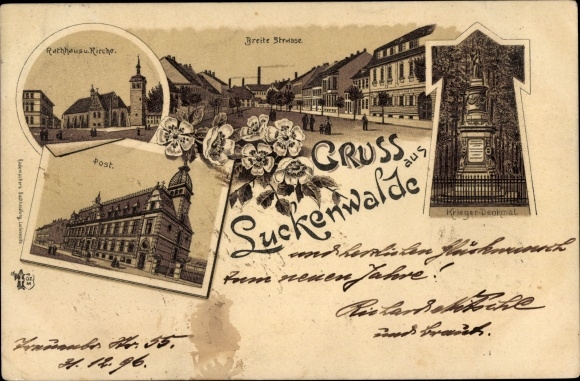 Rathhaus u. Kirche.
Breite Strasse
Post.
GRUSS
aus
Luckenwalde
Krieger-Denkmal.
und herzlichen Glückwunsch
zum neuen Jahre!
und Braut.
Str. 55.
31.12.96.